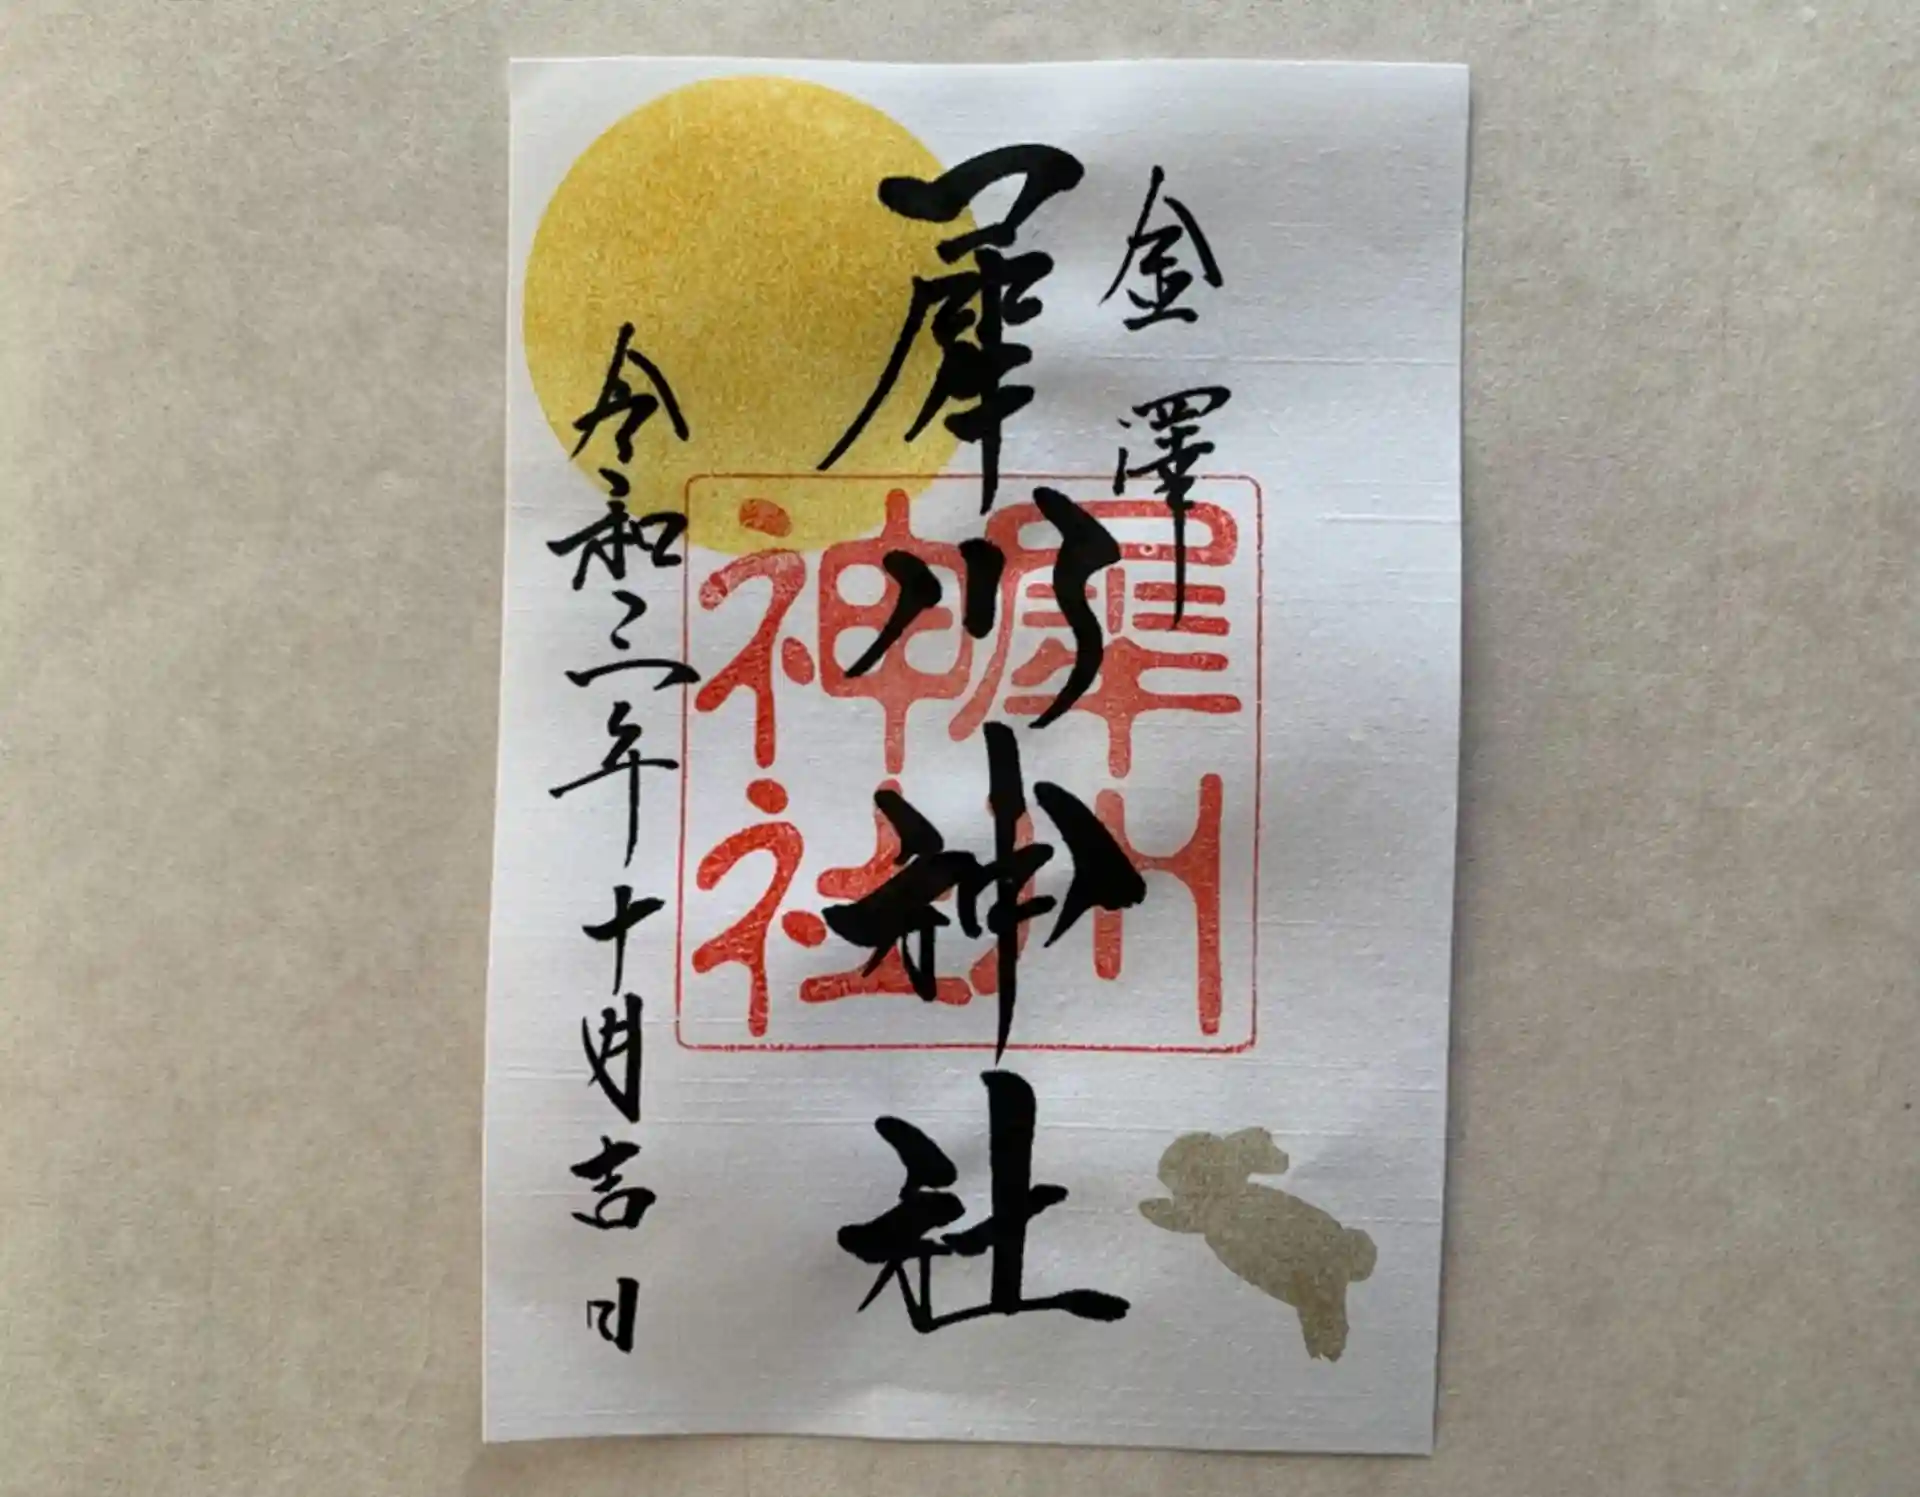 金澤
犀川神社
犀川神社
令和三年十月吉日